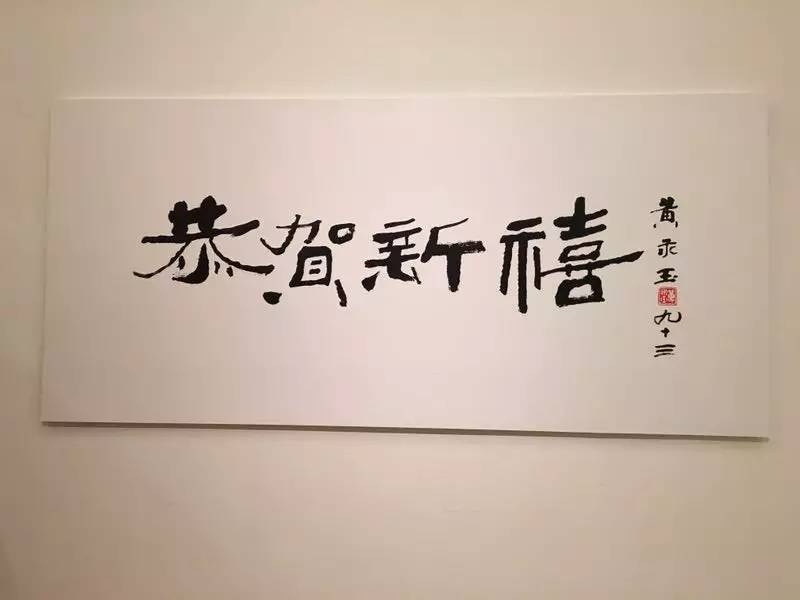 恭贺新禧
黄永玉
九十三